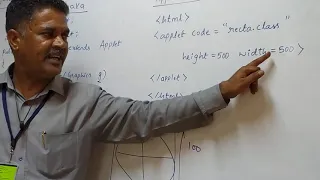 ava
<html>
<applet code = "recta.class"
extends Applet
height=500 width=500 >
Graphics g
</applet>
</html>
100